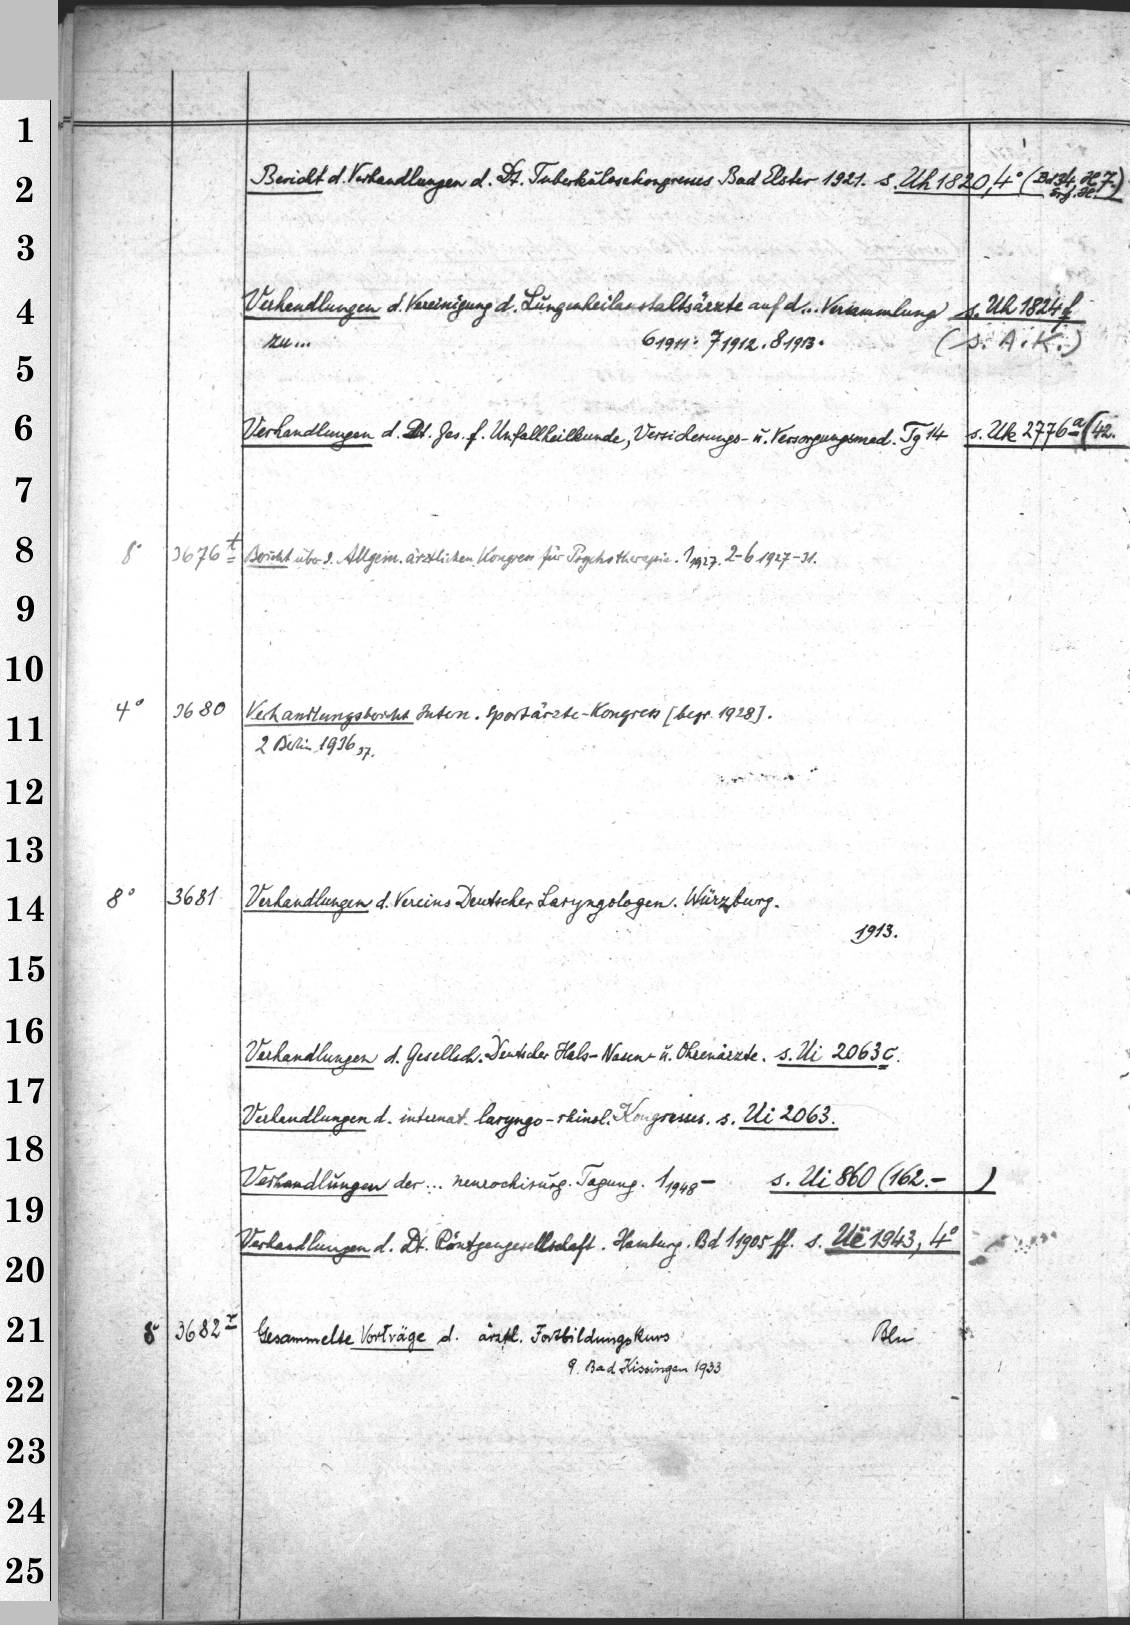 1
2
3
4
5
6
7
8
9
10
11
12
13
14
15
16
17
18
19
20
21
22
23
24
25
Bericht d. Verhandlungen d. Dt. Tuberkulosekongresses Bad Elster 1921. s. Uh 1820, 4° (Bd 34, H. 7.)
Erg. H.
Verhandlungen d. Vereinigung d. Lungenheilanstaltsärzte auf d... Versammlung s. Uh 1824 f
zu... 6 1911. 7 1912. 8 1913. (s. A. K.)
Verhandlungen d. Dt. Ges. f. Unfallheilkunde, Versicherungs- u. Versorgungsmed. Tg 14 s. Uk 2776 a (42.
8° 3676 t Bericht über d. Allgem. ärztlichen Kongress für Psychotherapie. 1 1927. 2-6 1927-31.
4° 3680 Verhandlungsbericht Intern. Sportärzte-Kongress [begr. 1928].
2 Berlin 1936 37.
8° 3681 Verhandlungen d. Vereins Deutscher Laryngologen. Würzburg.
1913.
Verhandlungen d. Gesellsch. Deutscher Hals- Nasen- u. Ohrenärzte. s. Ui 2063 c.
Verhandlungen d. internat. laryngo-rhinol. Kongresses. s. Ui 2063.
Verhandlungen der ... neurochirurg. Tagung. 1 1948- s. Ui 860 (162.- )
Verhandlungen d. Dt. Röntgengesellschaft. Hamburg. Bd 1 1905 ff. s. Uë 1943, 4°
8° 3682 r Gesammelte Vorträge d. ärztl. Fortbildungskurs Bln
9. Bad Kissingen 1933